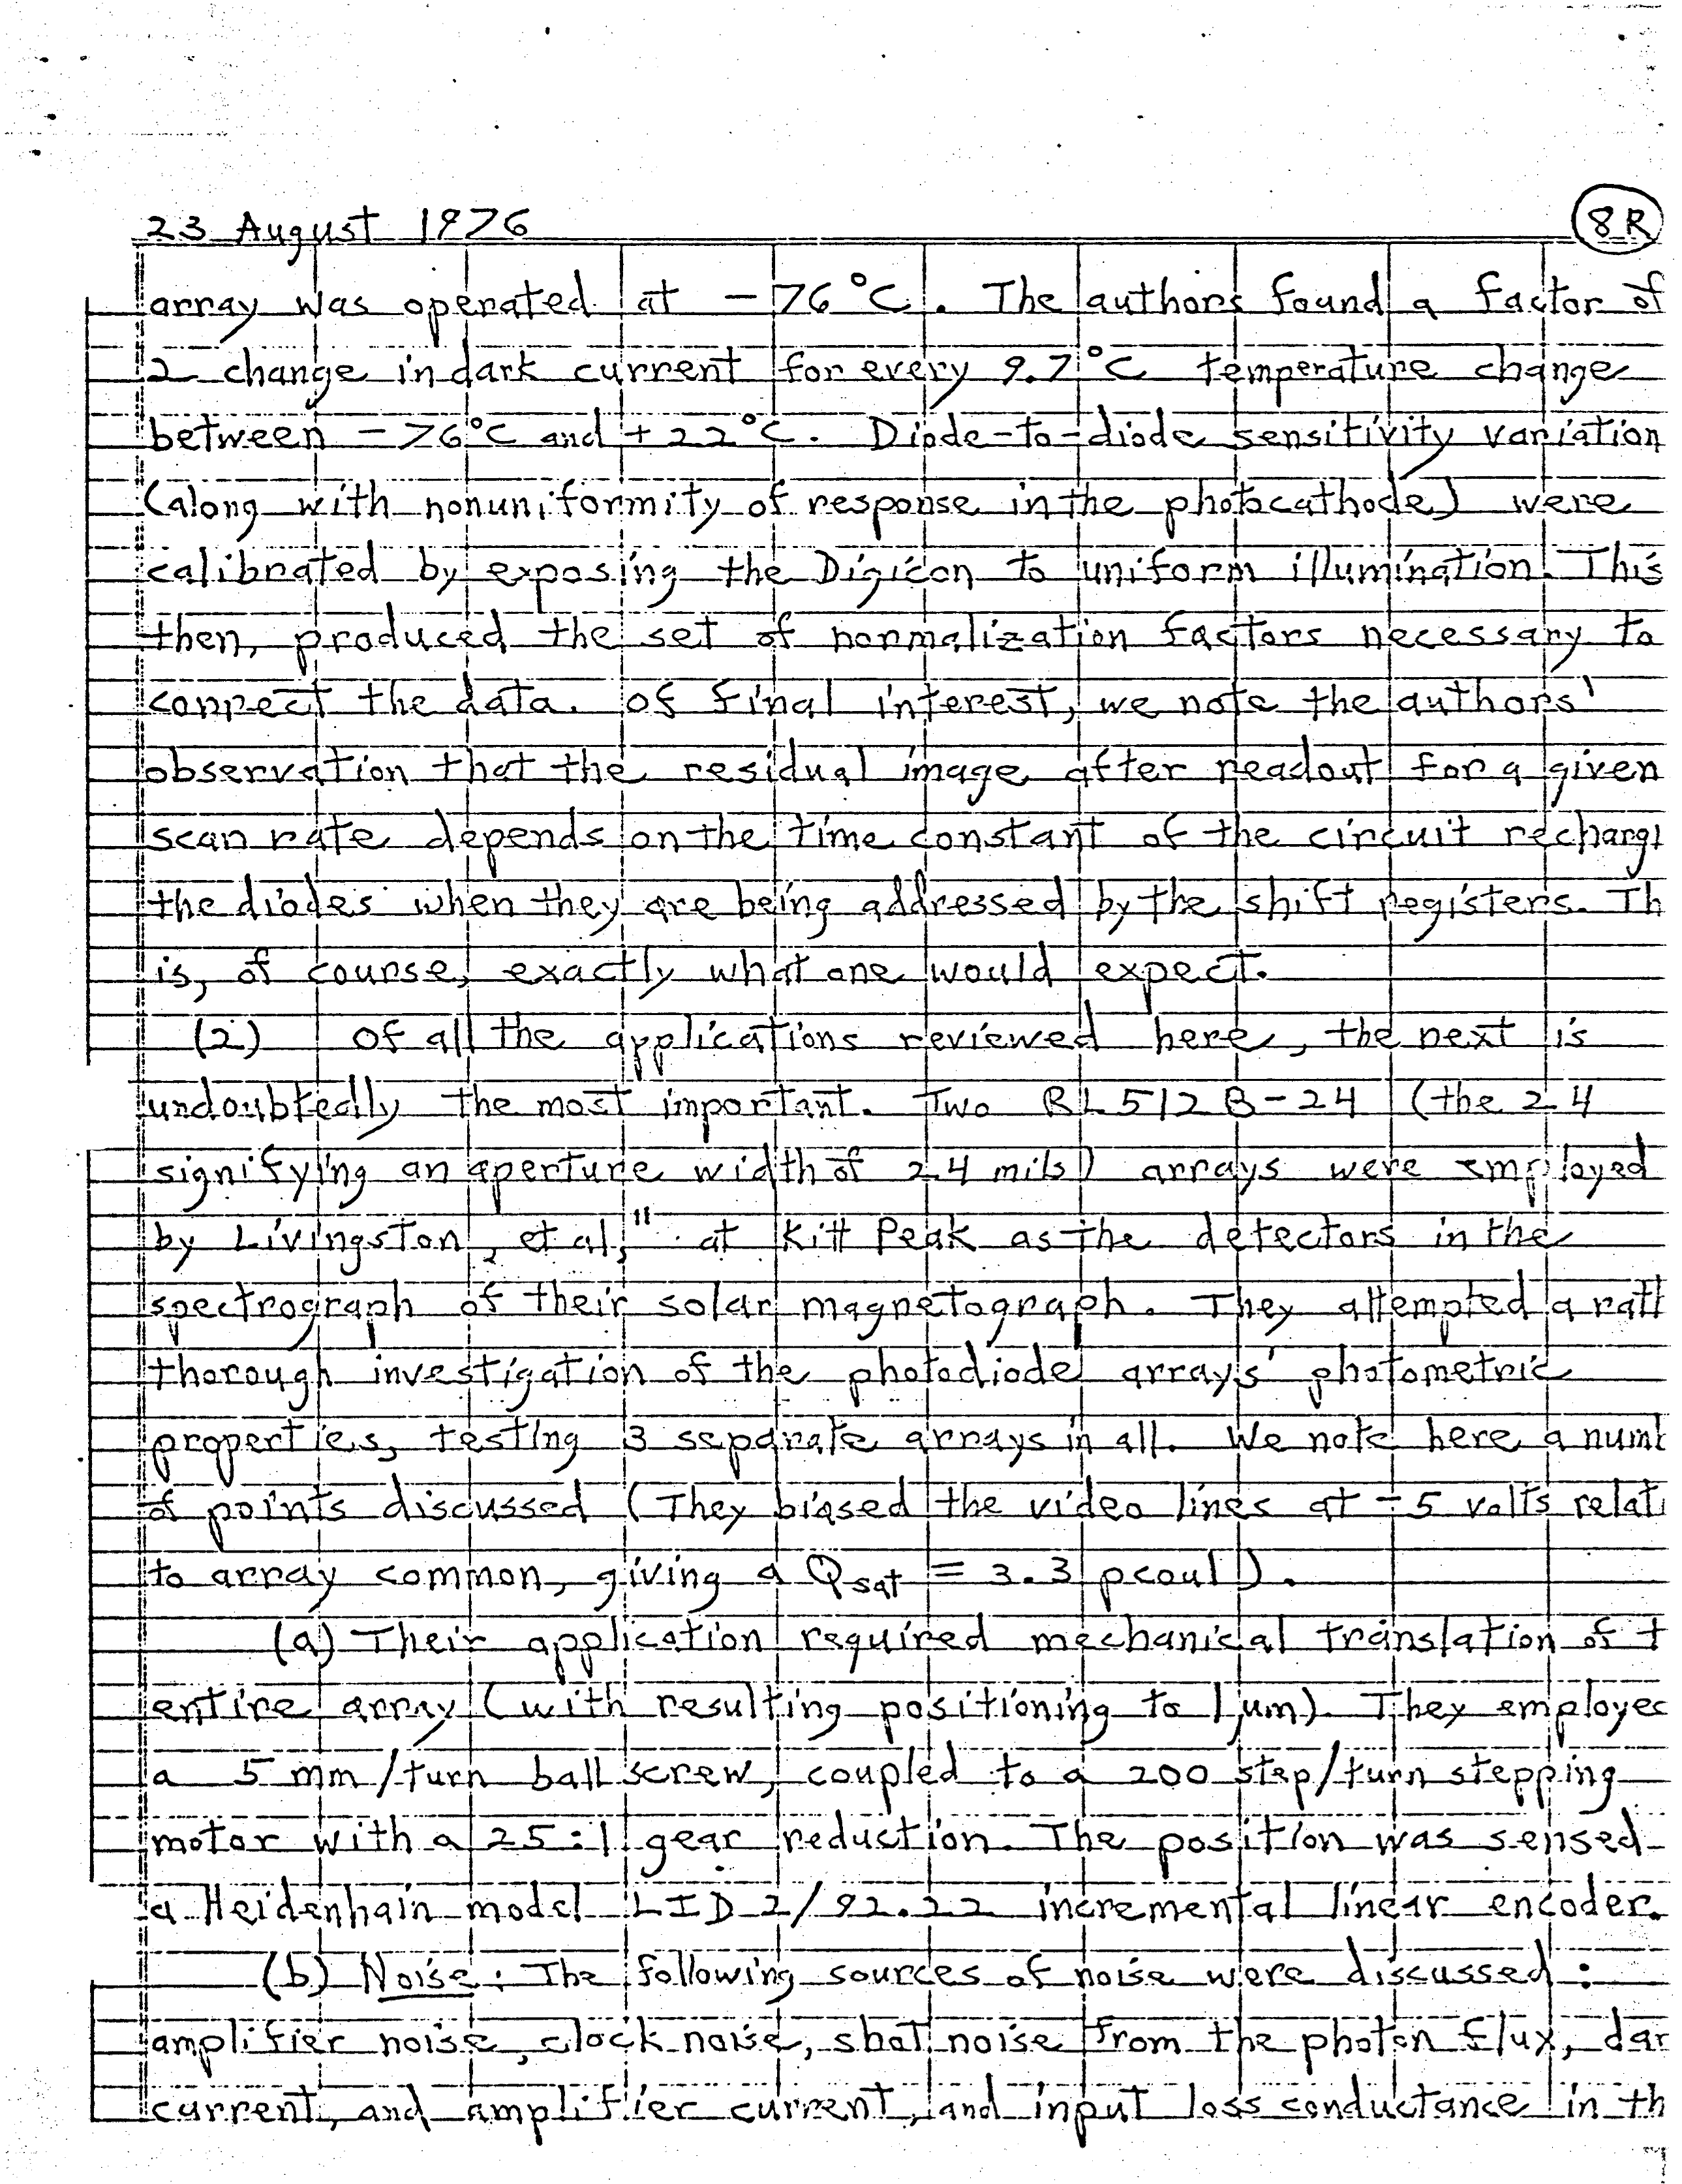 23 August 1976
8R
array was operated at -76°C. The authors found a factor of
2 change in dark current for every 9.7°C temperature change
between -76°C and +22°C. Diode-to-diode sensitivity variation
(along with nonuniformity of response in the photocathode) were
calibrated by exposing the Digicon to uniform illumination. This
then, produced the set of normalization factors necessary to
correct the data. Of final interest, we note the authors'
observation that the residual image after readout for a given
scan rate depends on the time constant of the circuit rechargi
the diodes when they are being addressed by the shift registers. Th
is, of course, exactly what one would expect.
(2) Of all the applications reviewed here, the next is
undoubtedly the most important. Two RL512B-24 (the 24
signifying an aperture width of 24 mils) arrays were employed
by Livingston, et al," at Kitt Peak as the detectors in the
spectrograph of their solar magnetograph. They attempted a rath
thorough investigation of the photodiode arrays' photometric
properties, testing 3 separate arrays in all. We note here a numb
of points discussed (They biased the video lines at -5 volts relati
to array common, giving a Qsat = 3.3 pcoul).
(a) Their application required mechanical translation of t
entire array (with resulting positioning to 1 µm). They employed
a 5 mm/turn ball screw, coupled to a 200 step/turn stepping
motor with a 25:1 gear reduction. The position was sensed
a Heidenhain model LID 2/92.22 incremental linear encoder.
(b) Noise: The following sources of noise were discussed:
amplifier noise, clock noise, shot noise from the photon flux, dar
current, and amplifier current, and input loss conductance in th